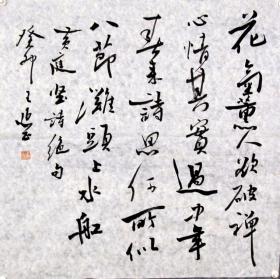 花氣薰人欲破禪
心情其實過中年
春來詩思何所似
八節灘頭上水船
黃庭堅詩絕句
癸卯